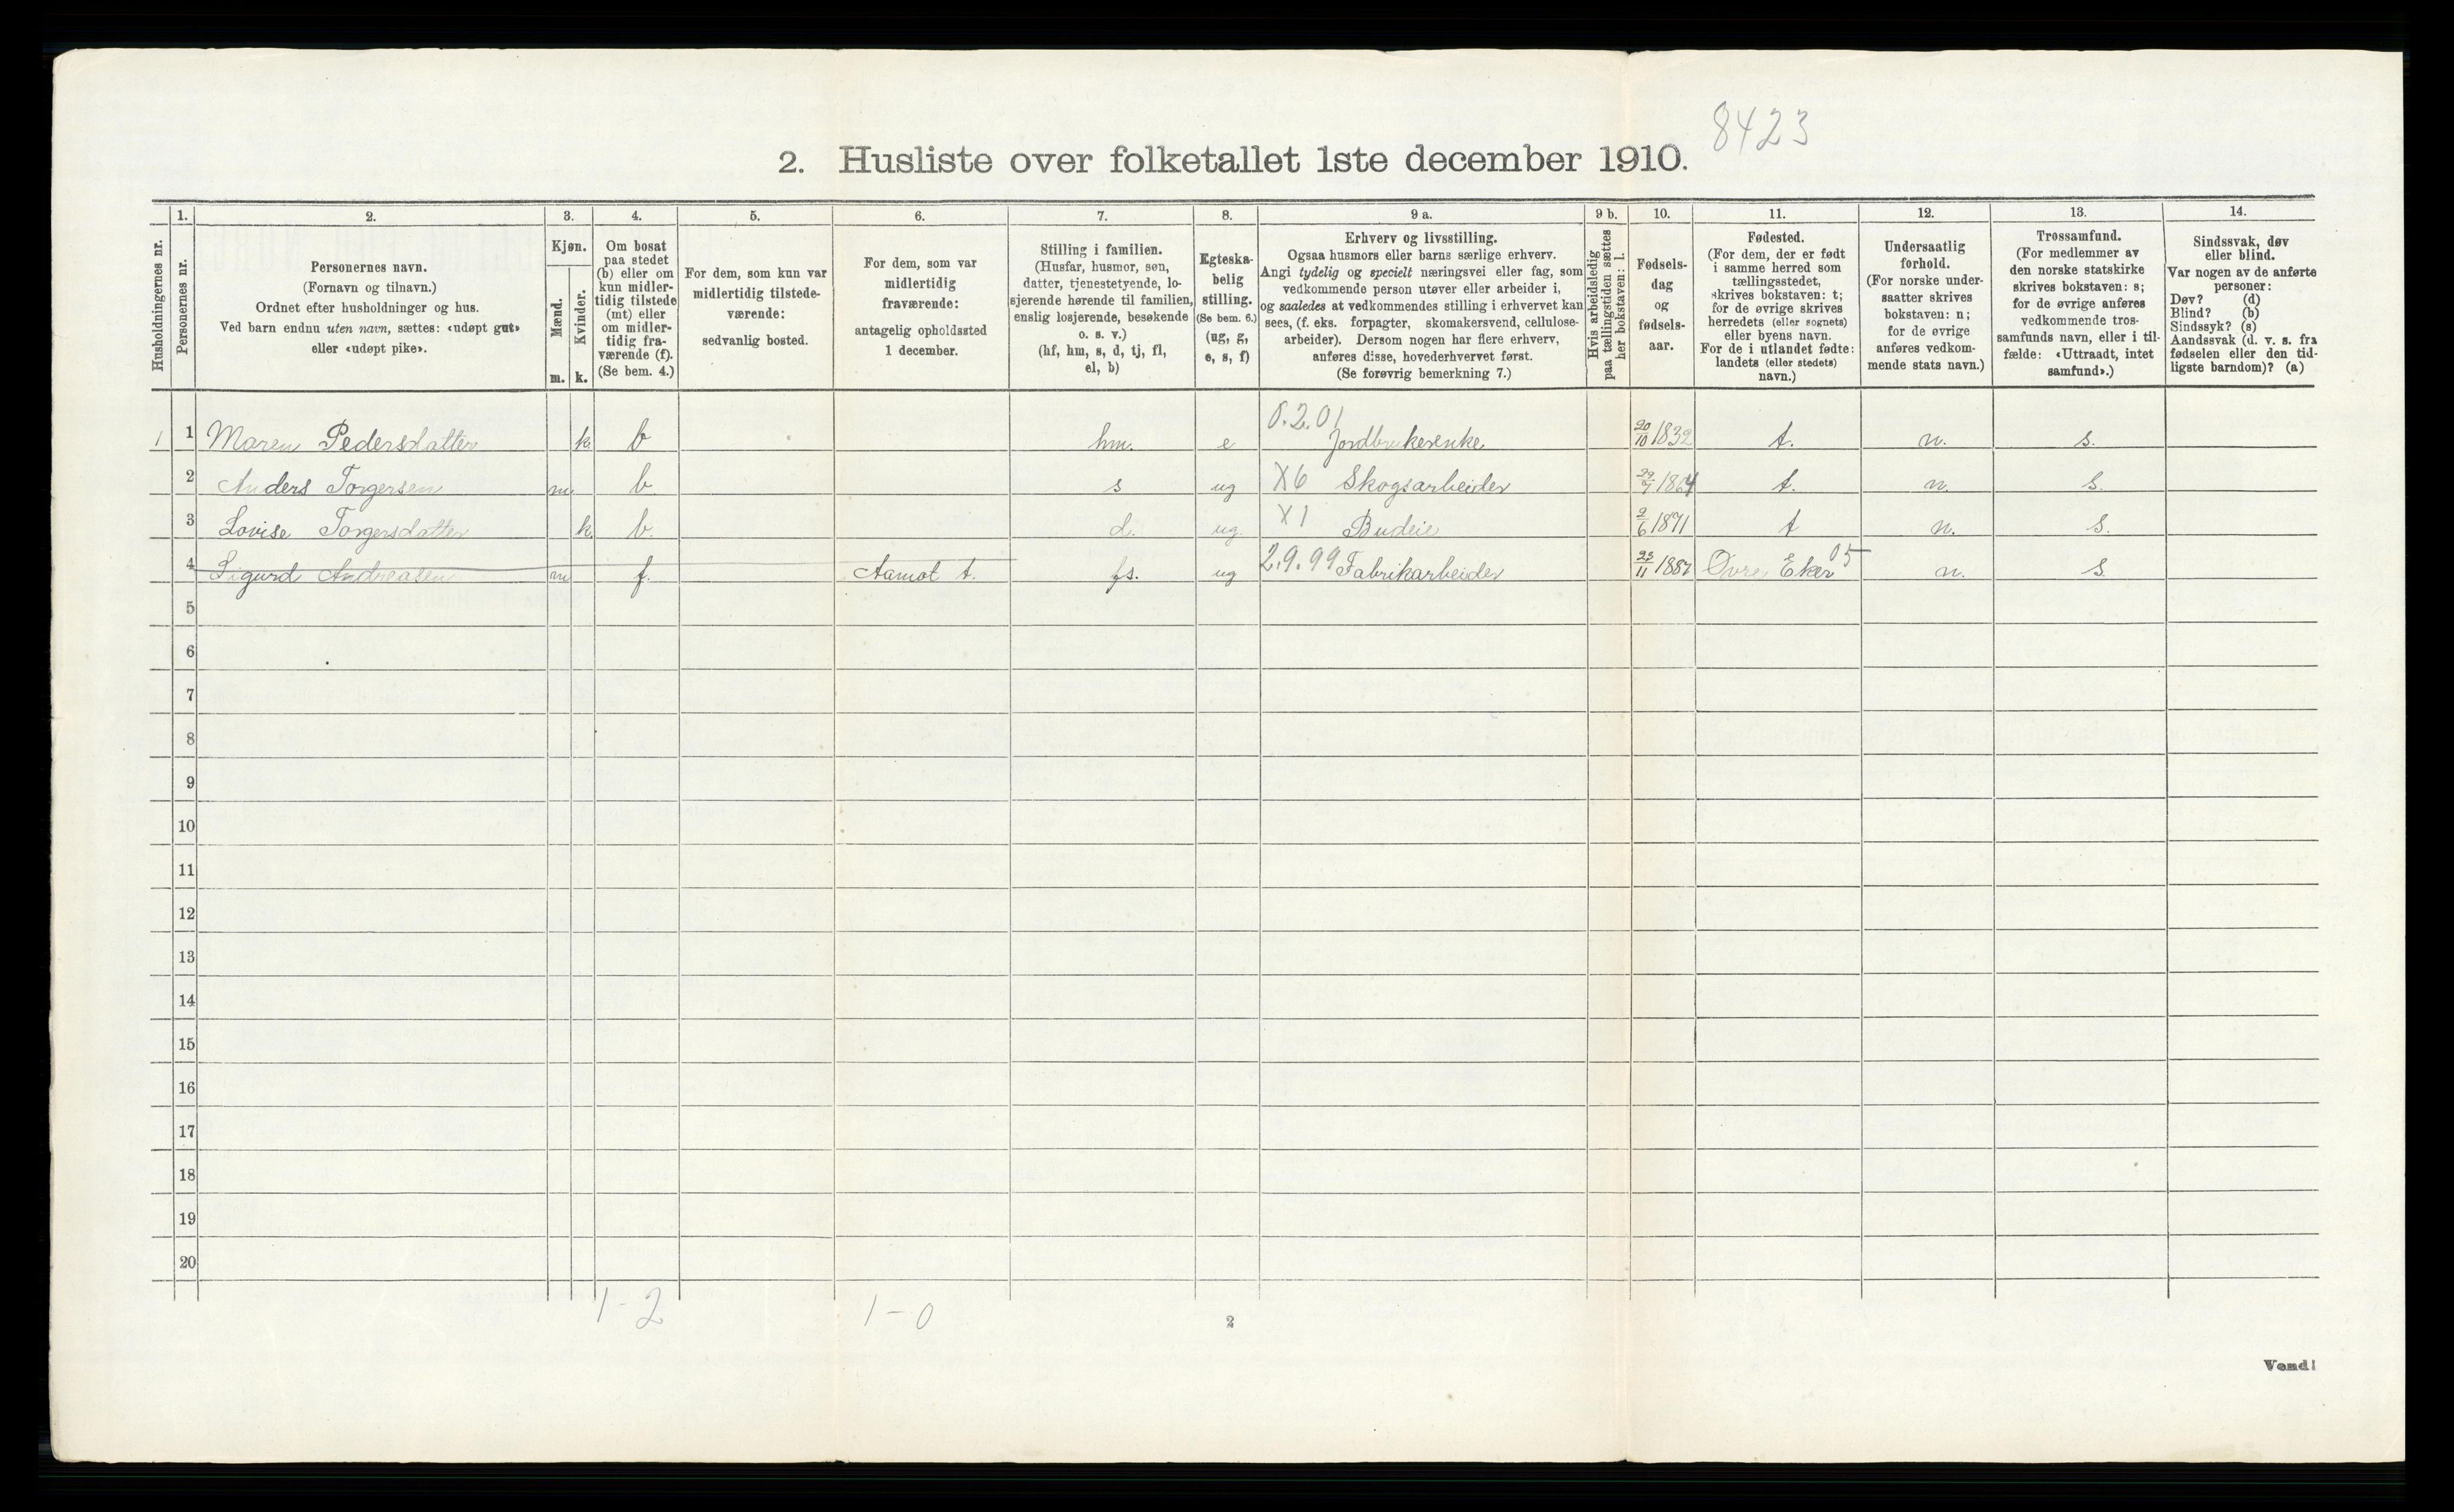 8423
2. Husliste over folketallet 1ste december 1910.
Husholdningernes nr.
1.
Personernes nr.
2.
Personernes navn.
(Fornavn og tilnavn.)
Ordnet efter husholdninger og hus.
Ved barn endnu uten navn, sættes: «udøpt gut»
eller «udøpt pike».
3.
Kjøn.
Mænd.
Kvinder.
m. k.
4.
Om bosat
paa stedet
(b) eller om
kun midler-
tidig tilstede
(mt) eller
om midler-
tidig fra-
værende (f).
(Se bem. 4.)
5.
For dem, som kun var
midlertidig tilstede-
værende:
sedvanlig bosted.
6.
For dem, som var
midlertidig
fraværende:
antagelig opholdssted
1 december.
7.
Stilling i familien.
(Husfar, husmor, søn,
datter, tjenestetyende, lo-
sjerende hørende til familien,
enslig losjerende, besøkende
o. s. v.)
(hf, hm, s, d, tj, fl,
el, b)
8.
Egteska-
belig
stilling.
(Se bem. 6.)
(ug, g,
e, s, f)
9 a.
Erhverv og livsstilling.
Ogsaa husmors eller barns særlige erhverv.
Angi tydelig og specielt næringsvei eller fag, som
vedkommende person utøver eller arbeider i,
og saaledes at vedkommendes stilling i erhvervet kan
sees, (f. eks. forpagter, skomakersvend, cellulose-
arbeider). Dersom nogen har flere erhverv,
anføres disse, hovederhvervet først.
(Se forøvrig bemerkning 7.)
9 b.
Hvis arbeidsledig
paa tællingstiden sættes
her bokstaven: l.
10.
Fødsels-
dag
og
fødsels-
aar.
11.
Fødested.
(For dem, der er født
i samme herred som
tællingsstedet,
skrives bokstaven: t;
for de øvrige skrives
herredets (eller sognets)
eller byens navn.
For de i utlandet fødte:
landets (eller stedets)
navn.)
12.
Undersaatlig
forhold.
(For norske under-
saatter skrives
bokstaven: n;
for de øvrige
anføres vedkom-
mende stats navn.)
13.
Trossamfund.
(For medlemmer av
den norske statskirke
skrives bokstaven: s;
for de øvrige anføres
vedkommende tros-
samfunds navn, eller i til-
fælde: «Uttraadt, intet
samfund».)
14.
Sindssvak, døv
eller blind.
Var nogen av de anførte
personer:
Døv? (d)
Blind? (b)
Sindssyk? (s)
Aandssvak (d. v. s. fra
fødselen eller den tid-
ligste barndom)? (a)
1 1 Maren Pedersdatter k b hm. e 0.2.01 Jordbrukerenke 20/10 1832 t. n. s.
2 Anders Torgersen m b s ug X6 Skogsarbeider 1864 t. n. s.
3 Lovise Torgersdatter k b. d. ug. X1 Budeie 2/6 1871 t n. s.
4 Sigurd Andreasen m f. Aamot t. fs. ug 2.9.99 Fabrikarbeider 23/11 1887 Øvre Eker 05 n. s.
5
6
7
8
9
10
11
12
13
14
15
16
17
18
19
20
1-2 1-0
2
Vend!